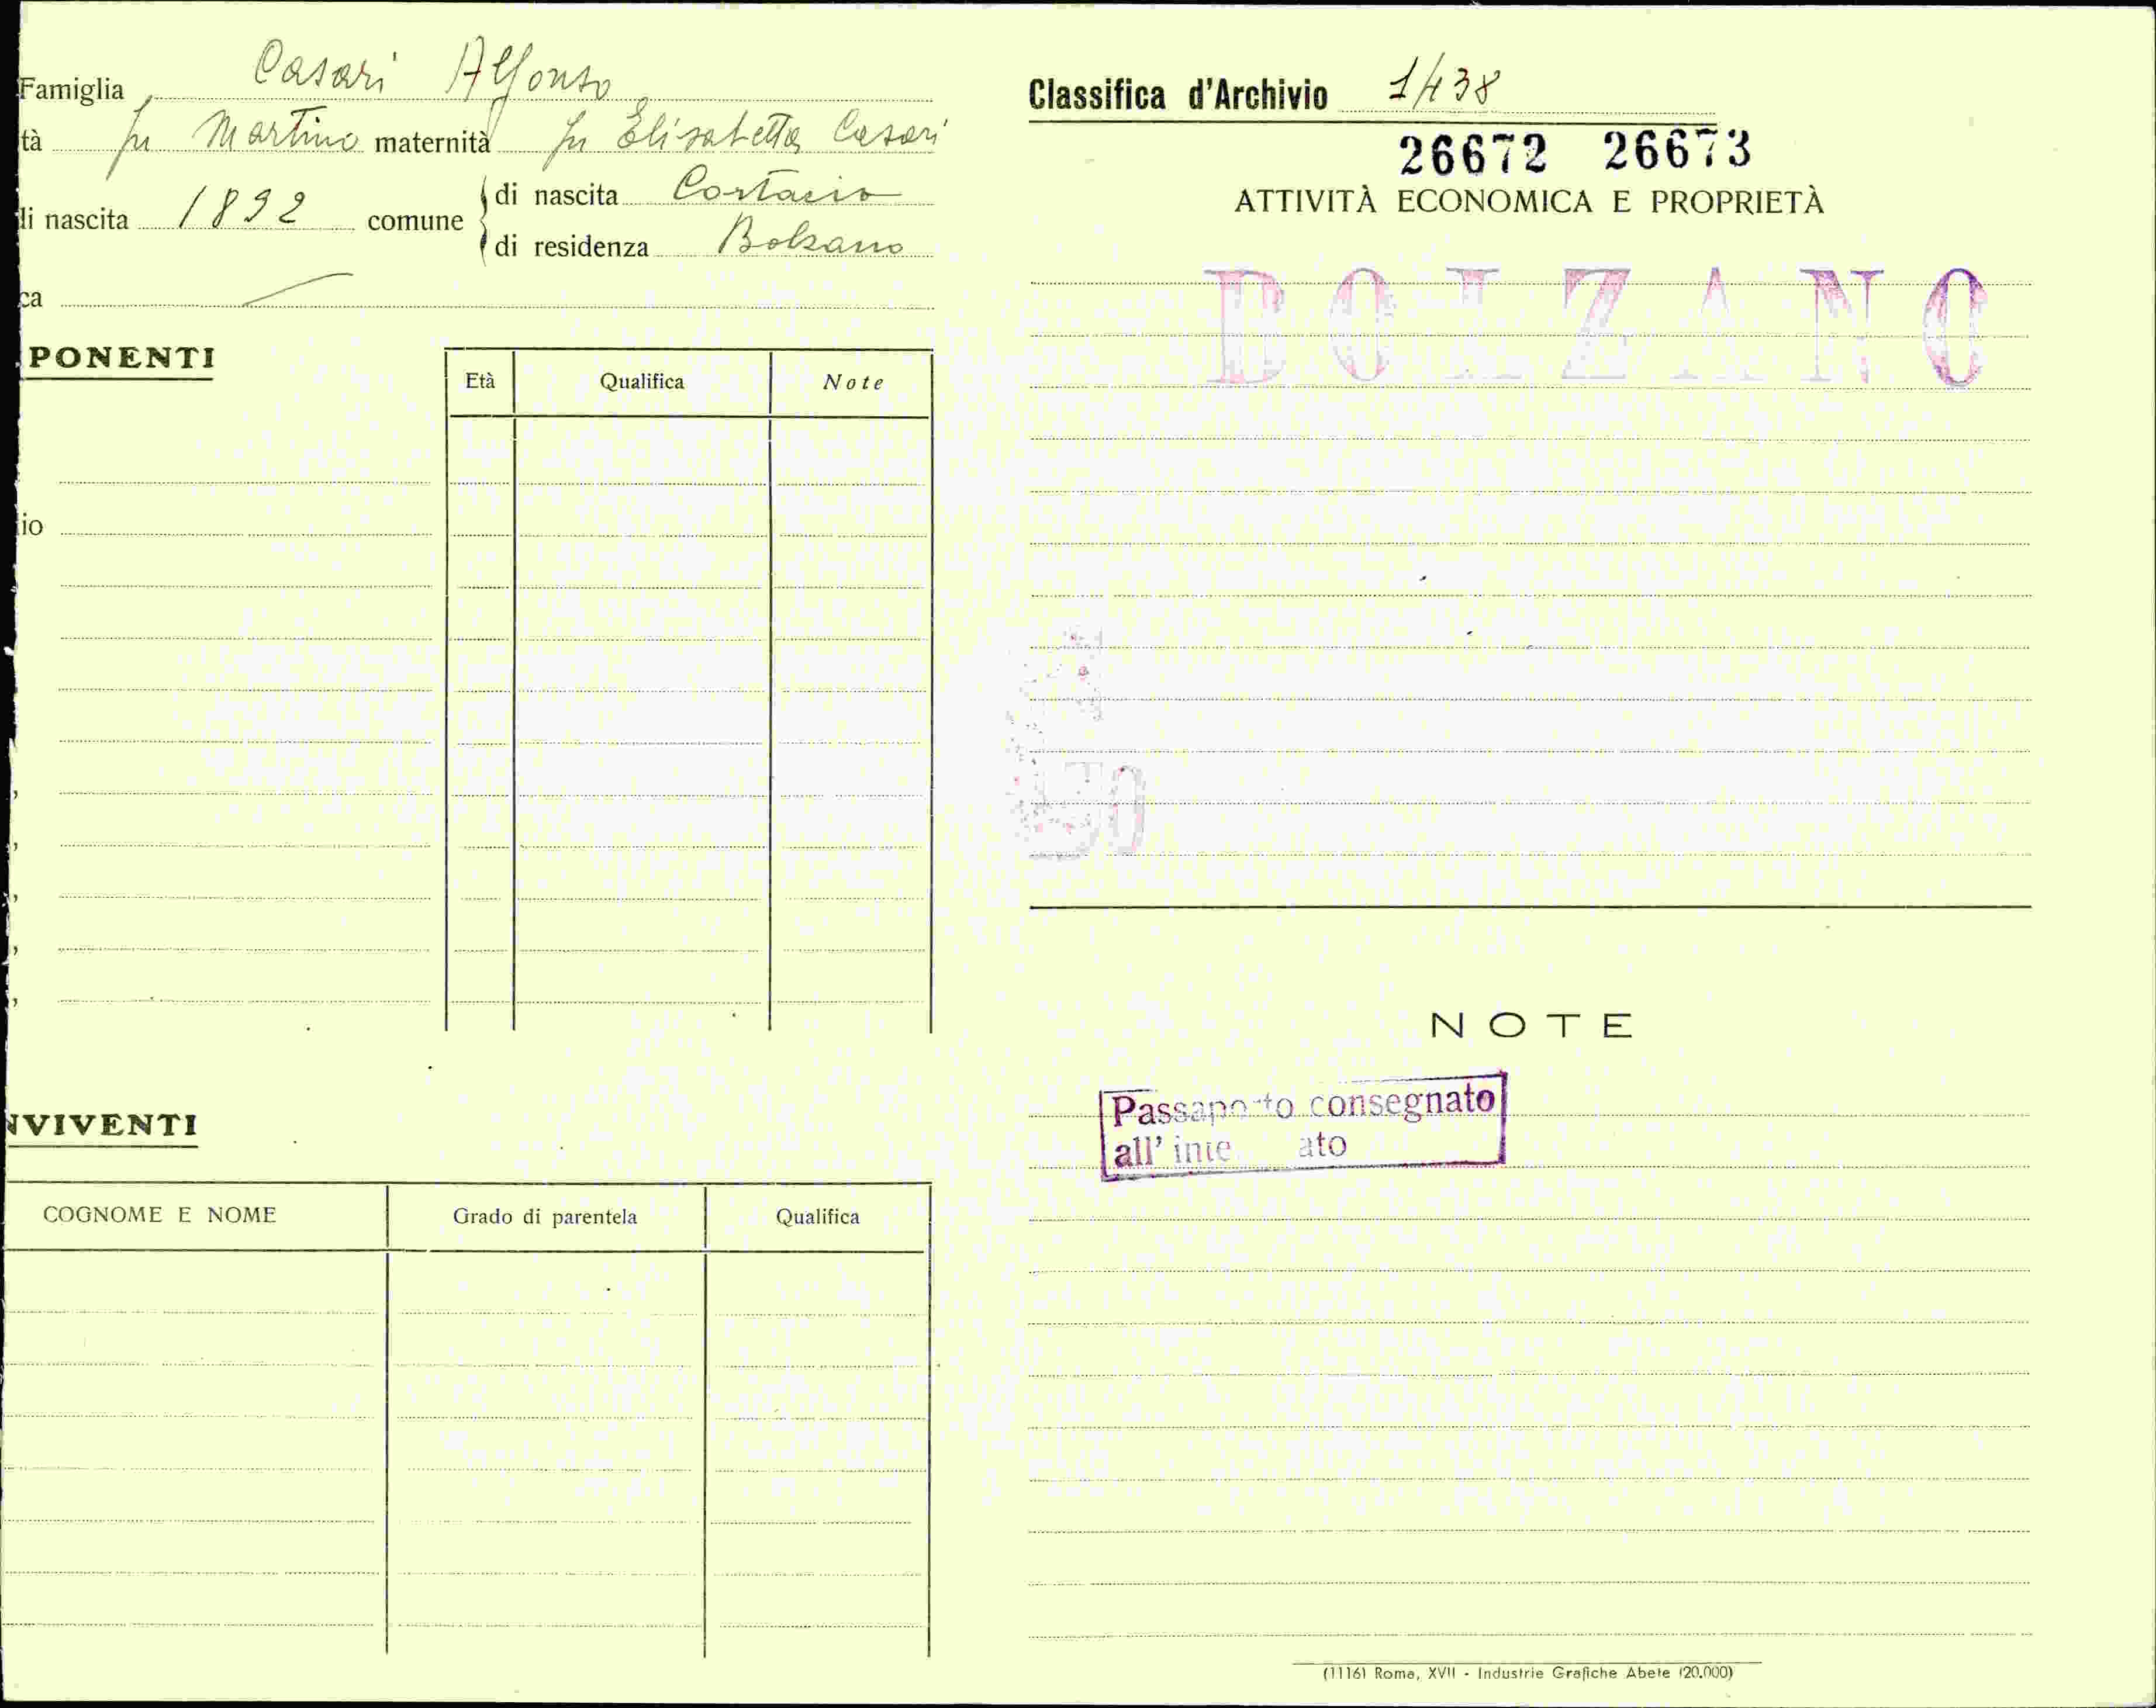 Famiglia Casari Alfonso
tà fu Martino maternità fu Elisabetta Casari
di nascita Cortaccia
li nascita 1892 comune
di residenza Bolzano
ca
PONENTI
Età Qualifica Note
io
NVIVENTI
COGNOME E NOME Grado di parentela Qualifica
Classifica d'Archivio 1438
26672 26673
ATTIVITÀ ECONOMICA E PROPRIETÀ
BOLZANO
NOTE
Passaporto consegnato
all' inte ato
(1116) Roma, XVII - Industrie Grafiche Abete (20.000)